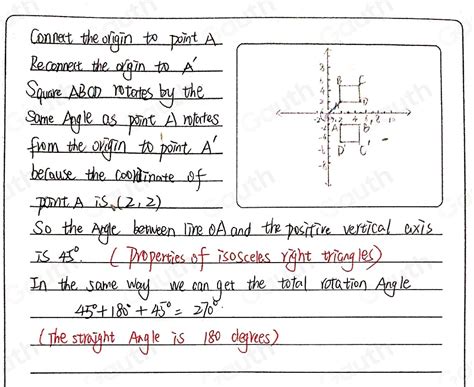 Connect the origin to point A
Reconnect the origin to A'
Square ABCD rotates by the
Same Angle as point A rotates
from the origin to point A'
because the coordinate of
point A is (2, 2)
So the Angle between line OA and the positive vertical axis
is 45°. (Properties of isosceles right triangles)
In the same way we can get the total rotation Angle
45° + 180° + 45° = 270°
(The straight Angle is 180 degrees)
B C
A D
A' B'
D' C'